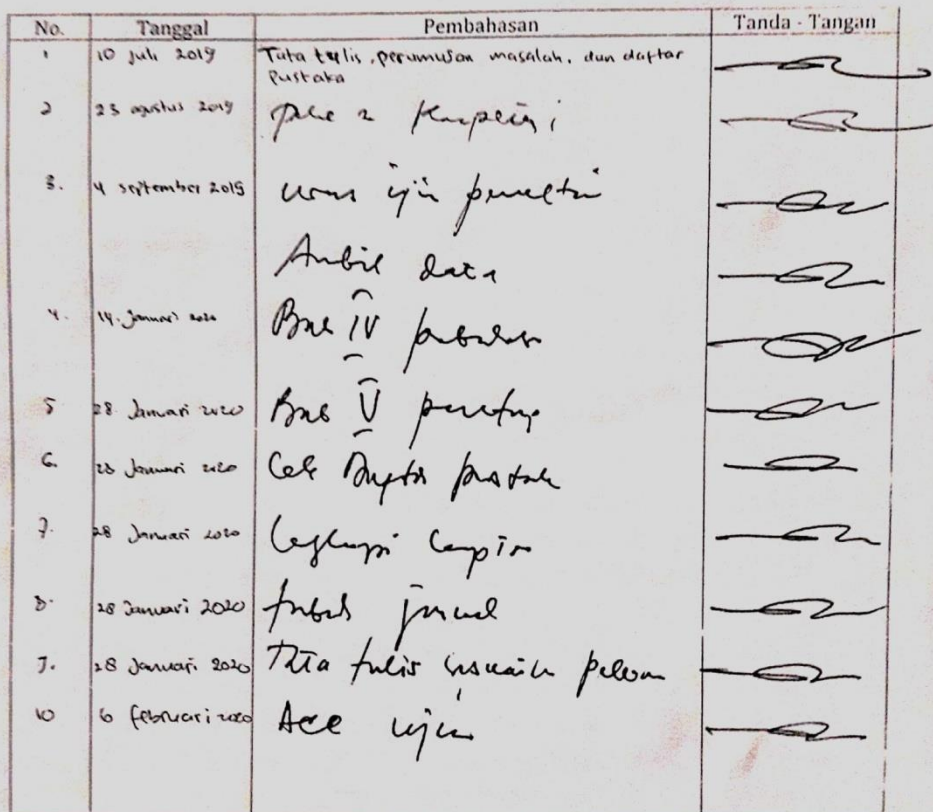 No. Tanggal Pembahasan Tanda - Tangan
1 10 juli 2019 Tata tulis, perumusan masalah, dan daftar
Pustaka
2 23 agustus 2019
3. 4 september 2019 urus ijin
Ambil data
4. 14. Januari 2020 Bab IV
5 28 Januari 2020 Bab V penutup
6. 28 Januari 2020 Cek Daftar pustak
7. 28 Januari 2020 Lengkapi
8. 28 Januari 2020 jurnal
9. 28 Januari 2020 Tata tulis sesuaikan
10 6 februari 2020 Acc ujian